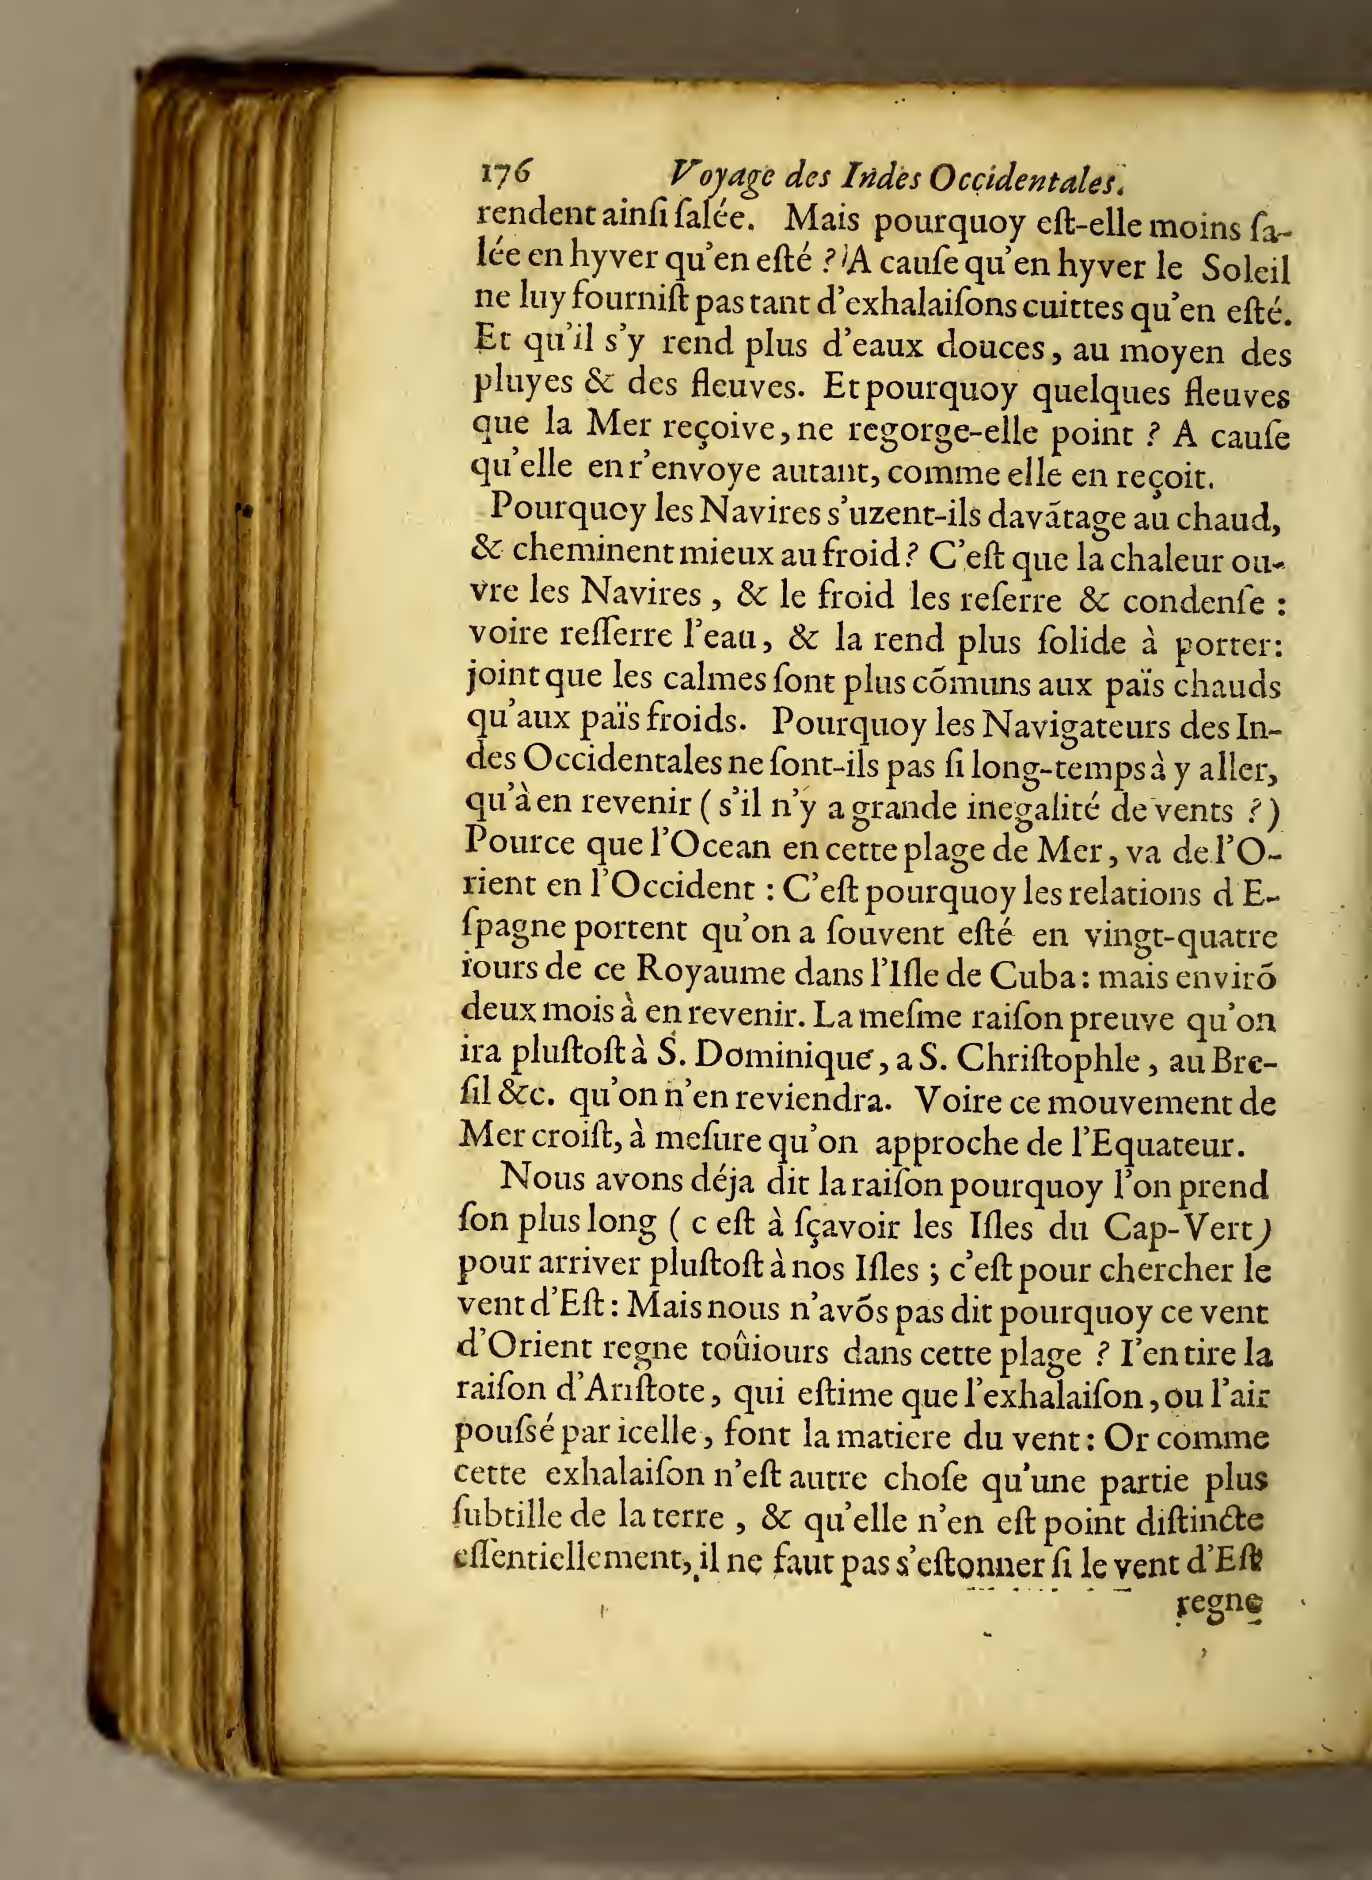 176 Voyage des Indes Occidentales.
rendent ainſi ſalée. Mais pourquoy eſt-elle moins ſa-
lée en hyver qu'en eſté ? A cauſe qu'en hyver le Soleil
ne luy fourniſt pas tant d'exhalaiſons cuittes qu'en eſté.
Et qu'il s'y rend plus d'eaux douces, au moyen des
pluyes & des fleuves. Et pourquoy quelques fleuves
que la Mer reçoive, ne regorge-elle point ? A cauſe
qu'elle en r'envoye autant, comme elle en reçoit.
Pourquoy les Navires s'uzent-ils davãtage au chaud,
& cheminent mieux au froid ? C'eſt que la chaleur ou-
vre les Navires, & le froid les reſerre & condenſe :
voire reſſerre l'eau, & la rend plus ſolide à porter:
joint que les calmes ſont plus cõmuns aux païs chauds
qu'aux païs froids. Pourquoy les Navigateurs des In-
des Occidentales ne ſont-ils pas ſi long-temps à y aller,
qu'à en revenir ( s'il n'y a grande inegalité de vents ? )
Pource que l'Ocean en cette plage de Mer, va de l'O-
rient en l'Occident : C'eſt pourquoy les relations d'E-
ſpagne portent qu'on a ſouvent eſté en vingt-quatre
iours de ce Royaume dans l'Iſle de Cuba : mais envirõ
deux mois à en revenir. La meſme raiſon preuve qu'on
ira pluſtoſt à S. Dominique, a S. Chriſtophle, au Bre-
ſil &c. qu'on n'en reviendra. Voire ce mouvement de
Mer croiſt, à meſure qu'on approche de l'Equateur.
Nous avons déja dit la raiſon pourquoy l'on prend
ſon plus long ( c eſt à ſçavoir les Iſles du Cap-Vert)
pour arriver pluſtoſt à nos Iſles ; c'eſt pour chercher le
vent d'Eſt : Mais nous n'avõs pas dit pourquoy ce vent
d'Orient regne toûiours dans cette plage ? I'en tire la
raiſon d'Ariſtote, qui eſtime que l'exhalaiſon, ou l'air
pouſsé par icelle, ſont la matiere du vent : Or comme
cette exhalaiſon n'eſt autre choſe qu'une partie plus
ſubtille de la terre, & qu'elle n'en eſt point diſtincte
eſſentiellement, il ne faut pas s'eſtonner ſi le vent d'Eſt
regne